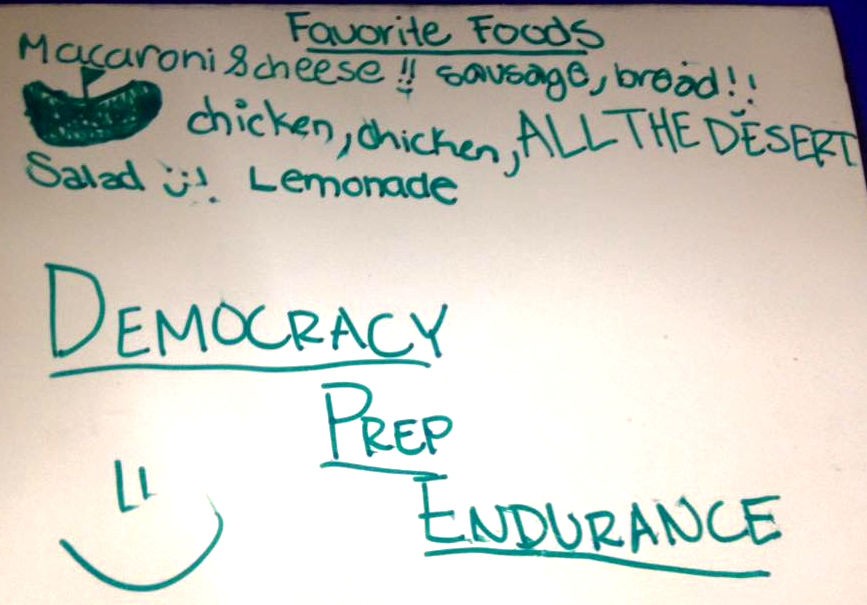 Favorite Foods
Macaroni & cheese !! sausage, bread!!
chicken, chicken, ALL THE DESERT
Salad :)! Lemonade
DEMOCRACY
PREP
ENDURANCE